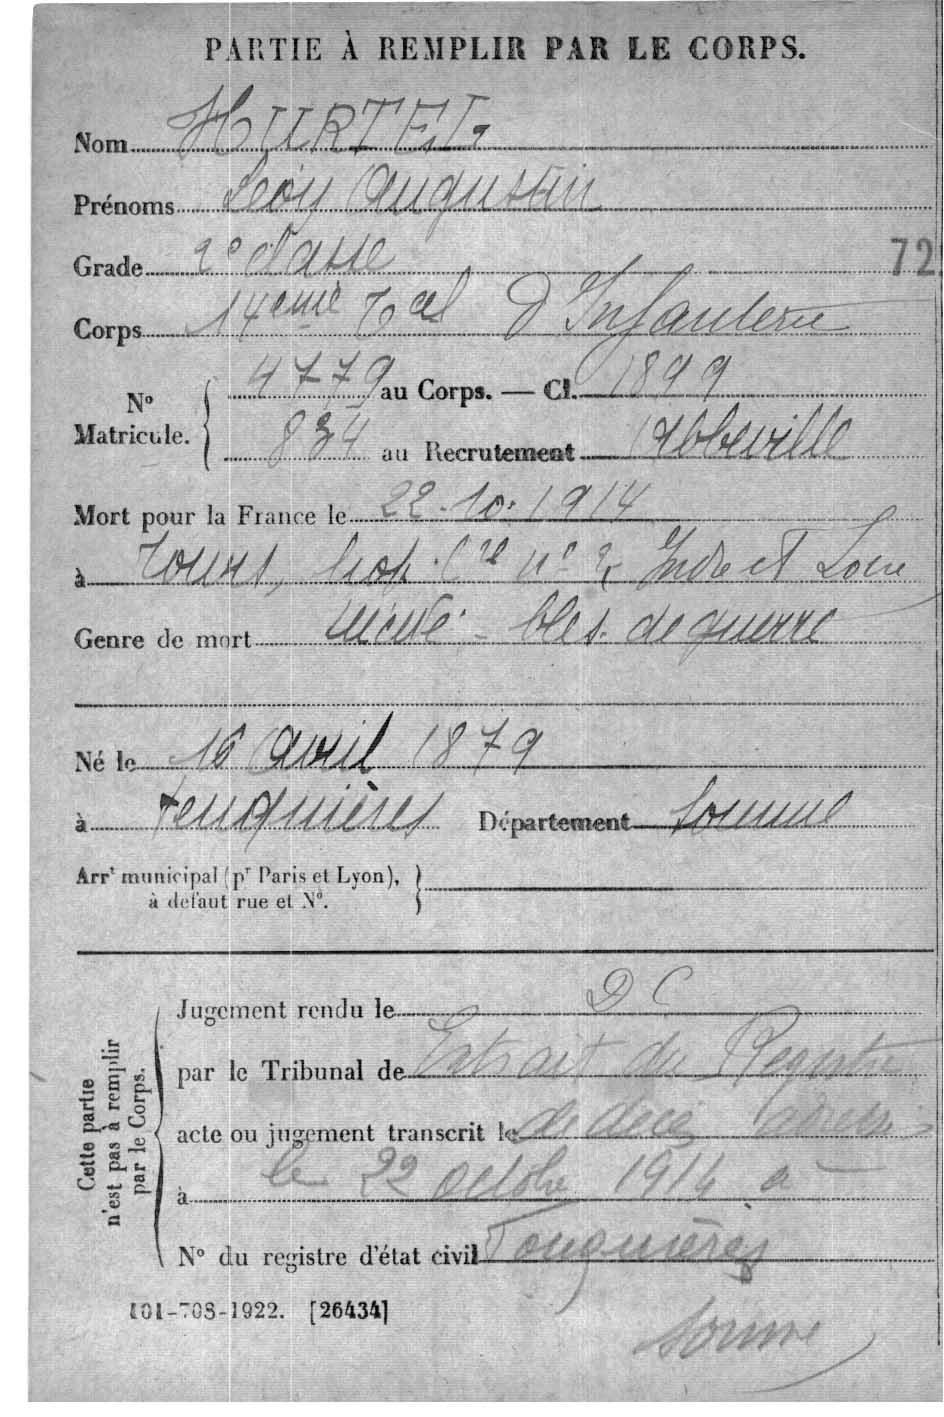 PARTIE À REMPLIR PAR LE CORPS.
Nom HURTEL
Prénoms Léon Augustin
Grade 2e classe
72
Corps 14eme Tal D'Infanterie
No Matricule. 4779 au Corps. — Cl. 1899
834 au Recrutement Abbeville
Mort pour la France le 22.10.1914
à Tours, hop. Cre no 2, Indre et Loire
Genre de mort bles. de guerre
Né le 16 Avril 1879
à Feuquières Département Somme
Arrt municipal (pr Paris et Lyon),
à défaut rue et No.
Cette partie
n'est pas à remplir
par le Corps.
Jugement rendu le DC
par le Tribunal de Extrait du Registre
acte ou jugement transcrit le de décès
à le 22 octobre 1914 a
No du registre d'état civil Fouquières
101-708-1922. [26434]
Somme